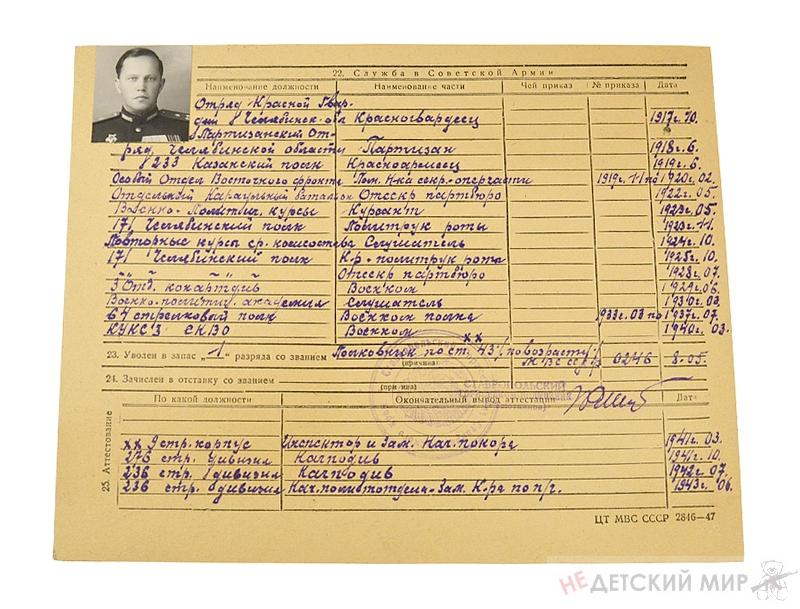 22. Служба в Советской Армии
Наименование должности Наименование части Чей приказ № приказа Дата
Отряд Красной Гвар-
дии в Челябинск. обл Красногвардеец 1917г. 10.
Партизанский От-
ряд Челябинской области Партизан 1918г. 6.
в 233 Казанский полк Красноармеец 1919г. 6.
Особый Отдел Восточного фронта Пом. Н-ка секр. оперчасти 1919г. 11 по 1920г. 02.
Отдельный Караульный батальон Отсекр партбюро 1922г. 05.
Военно-Политич. курсы Курсант 1923г. 05.
171 Челябинский полк Политрук роты 1923г. 11.
Повторные курсы ср. комсостава Слушатель 1924г. 10.
171 Челябинский полк К-р-политрук роты 1925г. 10.
" " — " — Отсекр партбюро 1928г. 07.
3 Отд. Военком 1929г. 06.
Военно-политич. академия Слушатель 1930г. 03.
64 стрелковый полк Военком полка 1933г. 03 по 1937г. 07.
КУКСЗ СКВО Военком 1940г. 03.
хх
23. Уволен в запас „1" разряда со званием Полковник по ст. 43 /по возрасту/ МВС СССР 0246 8.05.
(причина)
24. Зачислен в отставку со званием
(причина)
СТАВРОПОЛЬСКИЙ
По какой должности Окончательный вывод аттестации Дата
25. Аттестование
хх 9 стр. корпус Инспектор и Зам. Нач. покора 1941г. 03.
276 стр. дивизия Начподив 1941г. 10.
236 стр. дивизия Начподив 1942г. 07.
236 стр. дивизия Нач. политотдела-Зам. К-ра по п/ч. 1943г. 06.
ЦТ МВС СССР 2846—47
НЕДЕТСКИЙ МИР